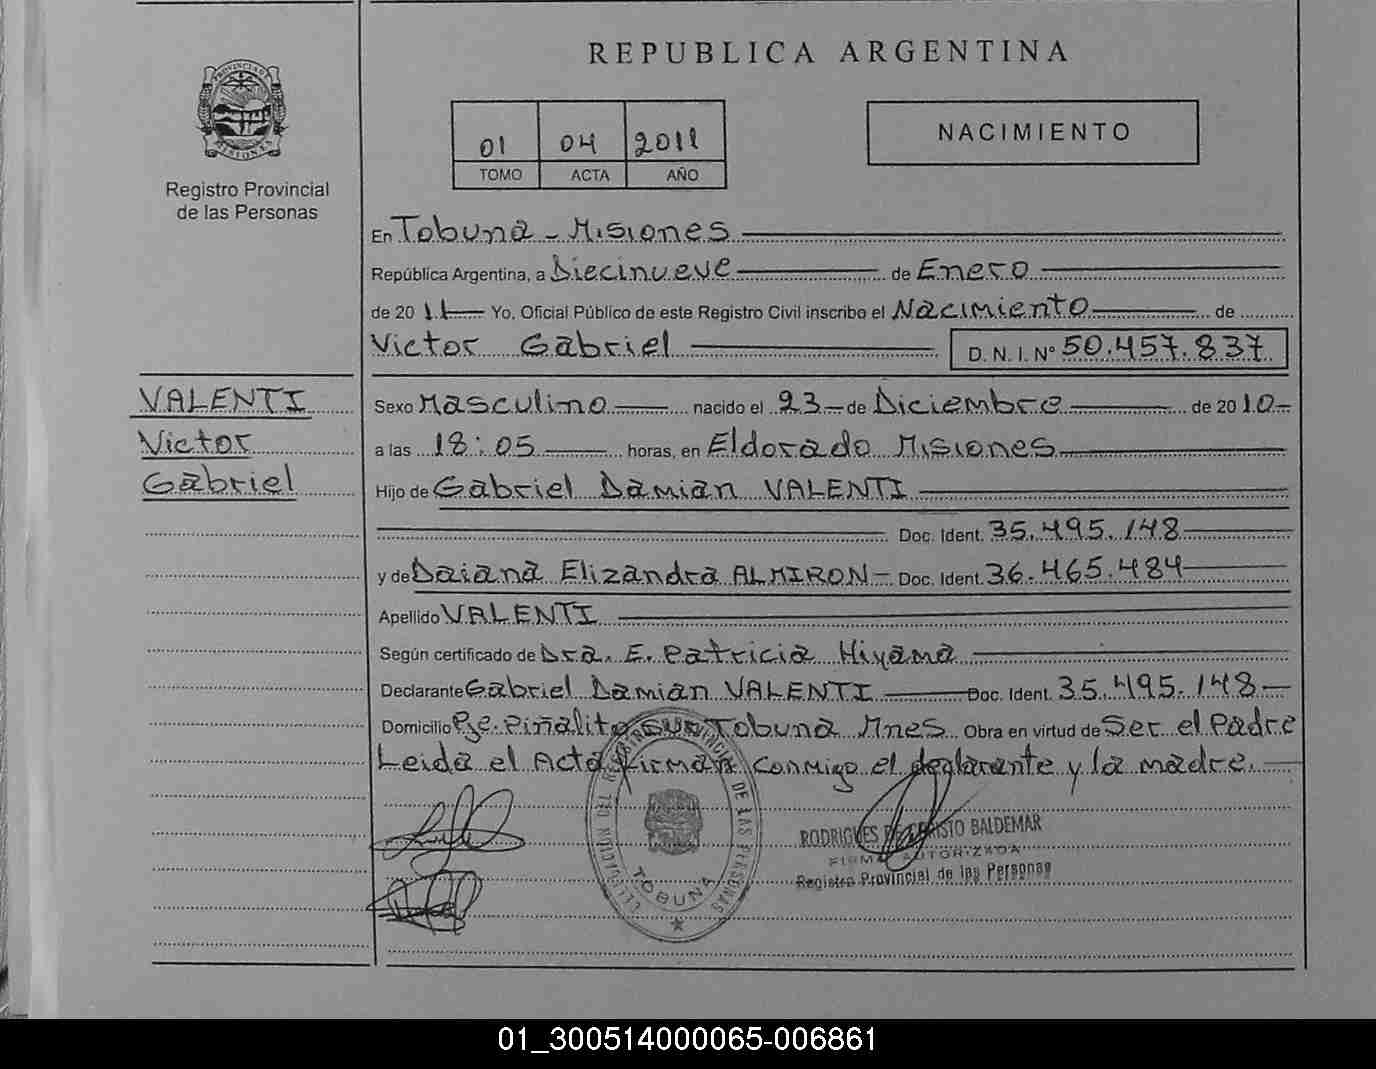 REPUBLICA ARGENTINA
PROVINCIA DE MISIONES
Registro Provincial
de las Personas
01 04 2011
TOMO ACTA AÑO
NACIMIENTO
En Tobuna - Misiones
República Argentina, a Diecinueve de Enero
de 2011 Yo, Oficial Público de este Registro Civil inscribo el Nacimiento de
Victor Gabriel D. N. I. Nº 50.457.837
VALENTI
Victor
Gabriel
Sexo Masculino nacido el 23 de Diciembre de 2010
a las 18:05 horas, en Eldorado Misiones
Hijo de Gabriel Damian VALENTI
Doc. Ident. 35.495.148
y de Daiana Elizandra ALMIRON Doc. Ident. 36.465.484
Apellido VALENTI
Según certificado de Dra. E. Patricia Hiyama
Declarante Gabriel Damian VALENTI Doc. Ident. 35.495.148
Domicilio Pje. Piñalito Sur Tobuna Mnes Obra en virtud de Ser el Padre
Leida el Acta firman conmigo el declarante y la madre.
DELEGACION DEL REGISTRO PROVINCIAL DE LAS PERSONAS
TOBUNA
RODRIGUES DE CRISTO BALDEMAR
FIRMA AUTORIZADA
Registro Provincial de las Personas
01_300514000065-006861